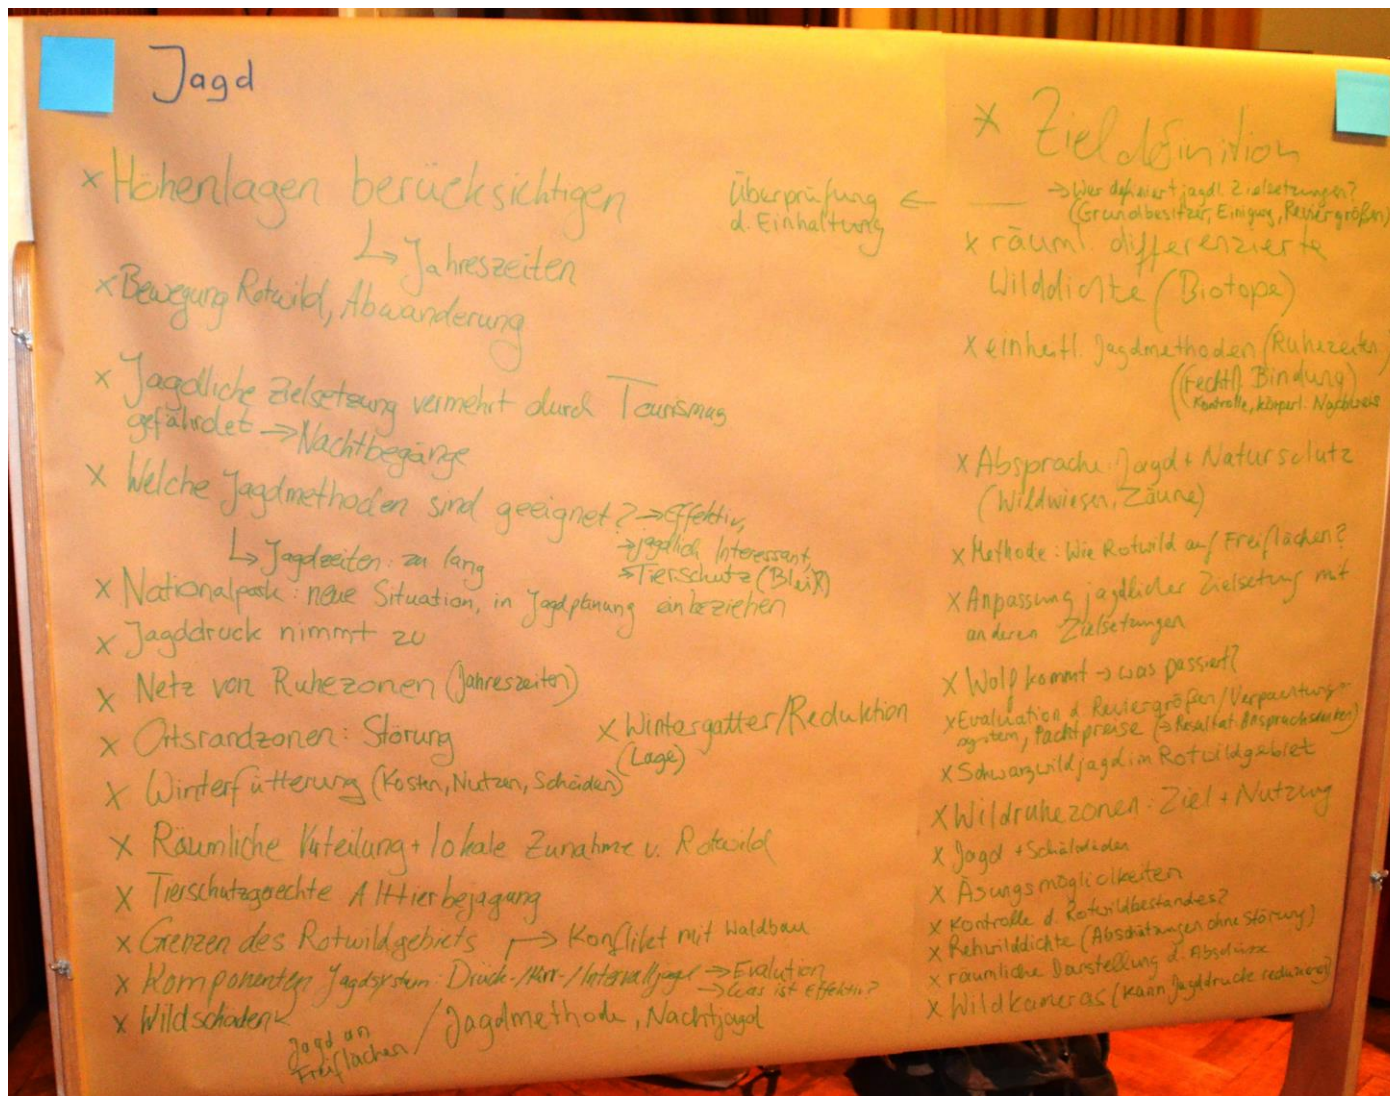 Jagd
x Höhenlagen berücksichtigen
↳ Jahreszeiten
x Bewegung Rotwild, Abwanderung
x Jagdliche Zielsetzung vermehrt durch Tourismus
gefährdet → Nachtbegänge
x Welche Jagdmethoden sind geeignet? → effektiv,
→ jagdlich Interessant,
→ Tierschutz (Blei X)
↳ Jagdzeiten: zu lang
x Nationalpark: neue Situation, in Jagdplanung einbeziehen
x Jagddruck nimmt zu
x Netz von Ruhezonen (Jahreszeiten)
x Ortsrandzonen: Störung
x Wintergatter/Reduktion
(Lage)
x Winterfütterung (Kosten, Nutzen, Schäden)
x Räumliche Verteilung + lokale Zunahme v. Rotwild
x Tierschutzgerechte Alttierbejagung
x Grenzen des Rotwildgebiets
→ Konflikt mit Waldbau
x Komponenten Jagdsystem: Drück-/Kirr-/Intervalljagd → Evalution
→ Was ist effektiv?
x Wildschäden
Jagd an
Freiflächen
/ Jagdmethode, Nachtjagd
x Zieldefinition
→ Wer definiert jagdl. Zielsetzungen?
(Grundbesitzer, Einigung, Reviergrößen)
Überprüfung ←
d. Einhaltung
x räuml. differenzierte
Wilddichte (Biotope)
x einheitl. Jagdmethoden (Ruhezeiten)
(rechtl. Bindung)
Kontrolle, körperl. Nachweis
x Absprache: Jagd + Naturschutz
(Wildwiesen, Zäune)
x Methode: Wie Rotwild auf Freiflächen?
x Anpassung jagdlicher Zielsetzung mit
anderen Zielsetzungen
x Wolf kommt → was passiert?
x Evaluation d. Reviergrößen/Verpachtungs-
system, Pachtpreise (→ Resultat: Anspruchsdenken)
x Schwarzwildjagd im Rotwildgebiet
x Wildruhezonen: Ziel + Nutzung
x Jagd + Schälschäden
x Äsungsmöglichkeiten
x Kontrolle d. Rotwildbestandes?
x Rehwilddichte (Abschätzungen ohne Störung)
x räumliche Darstellung d. Abschüsse
x Wildkameras (kann Jagddruck reduzieren)